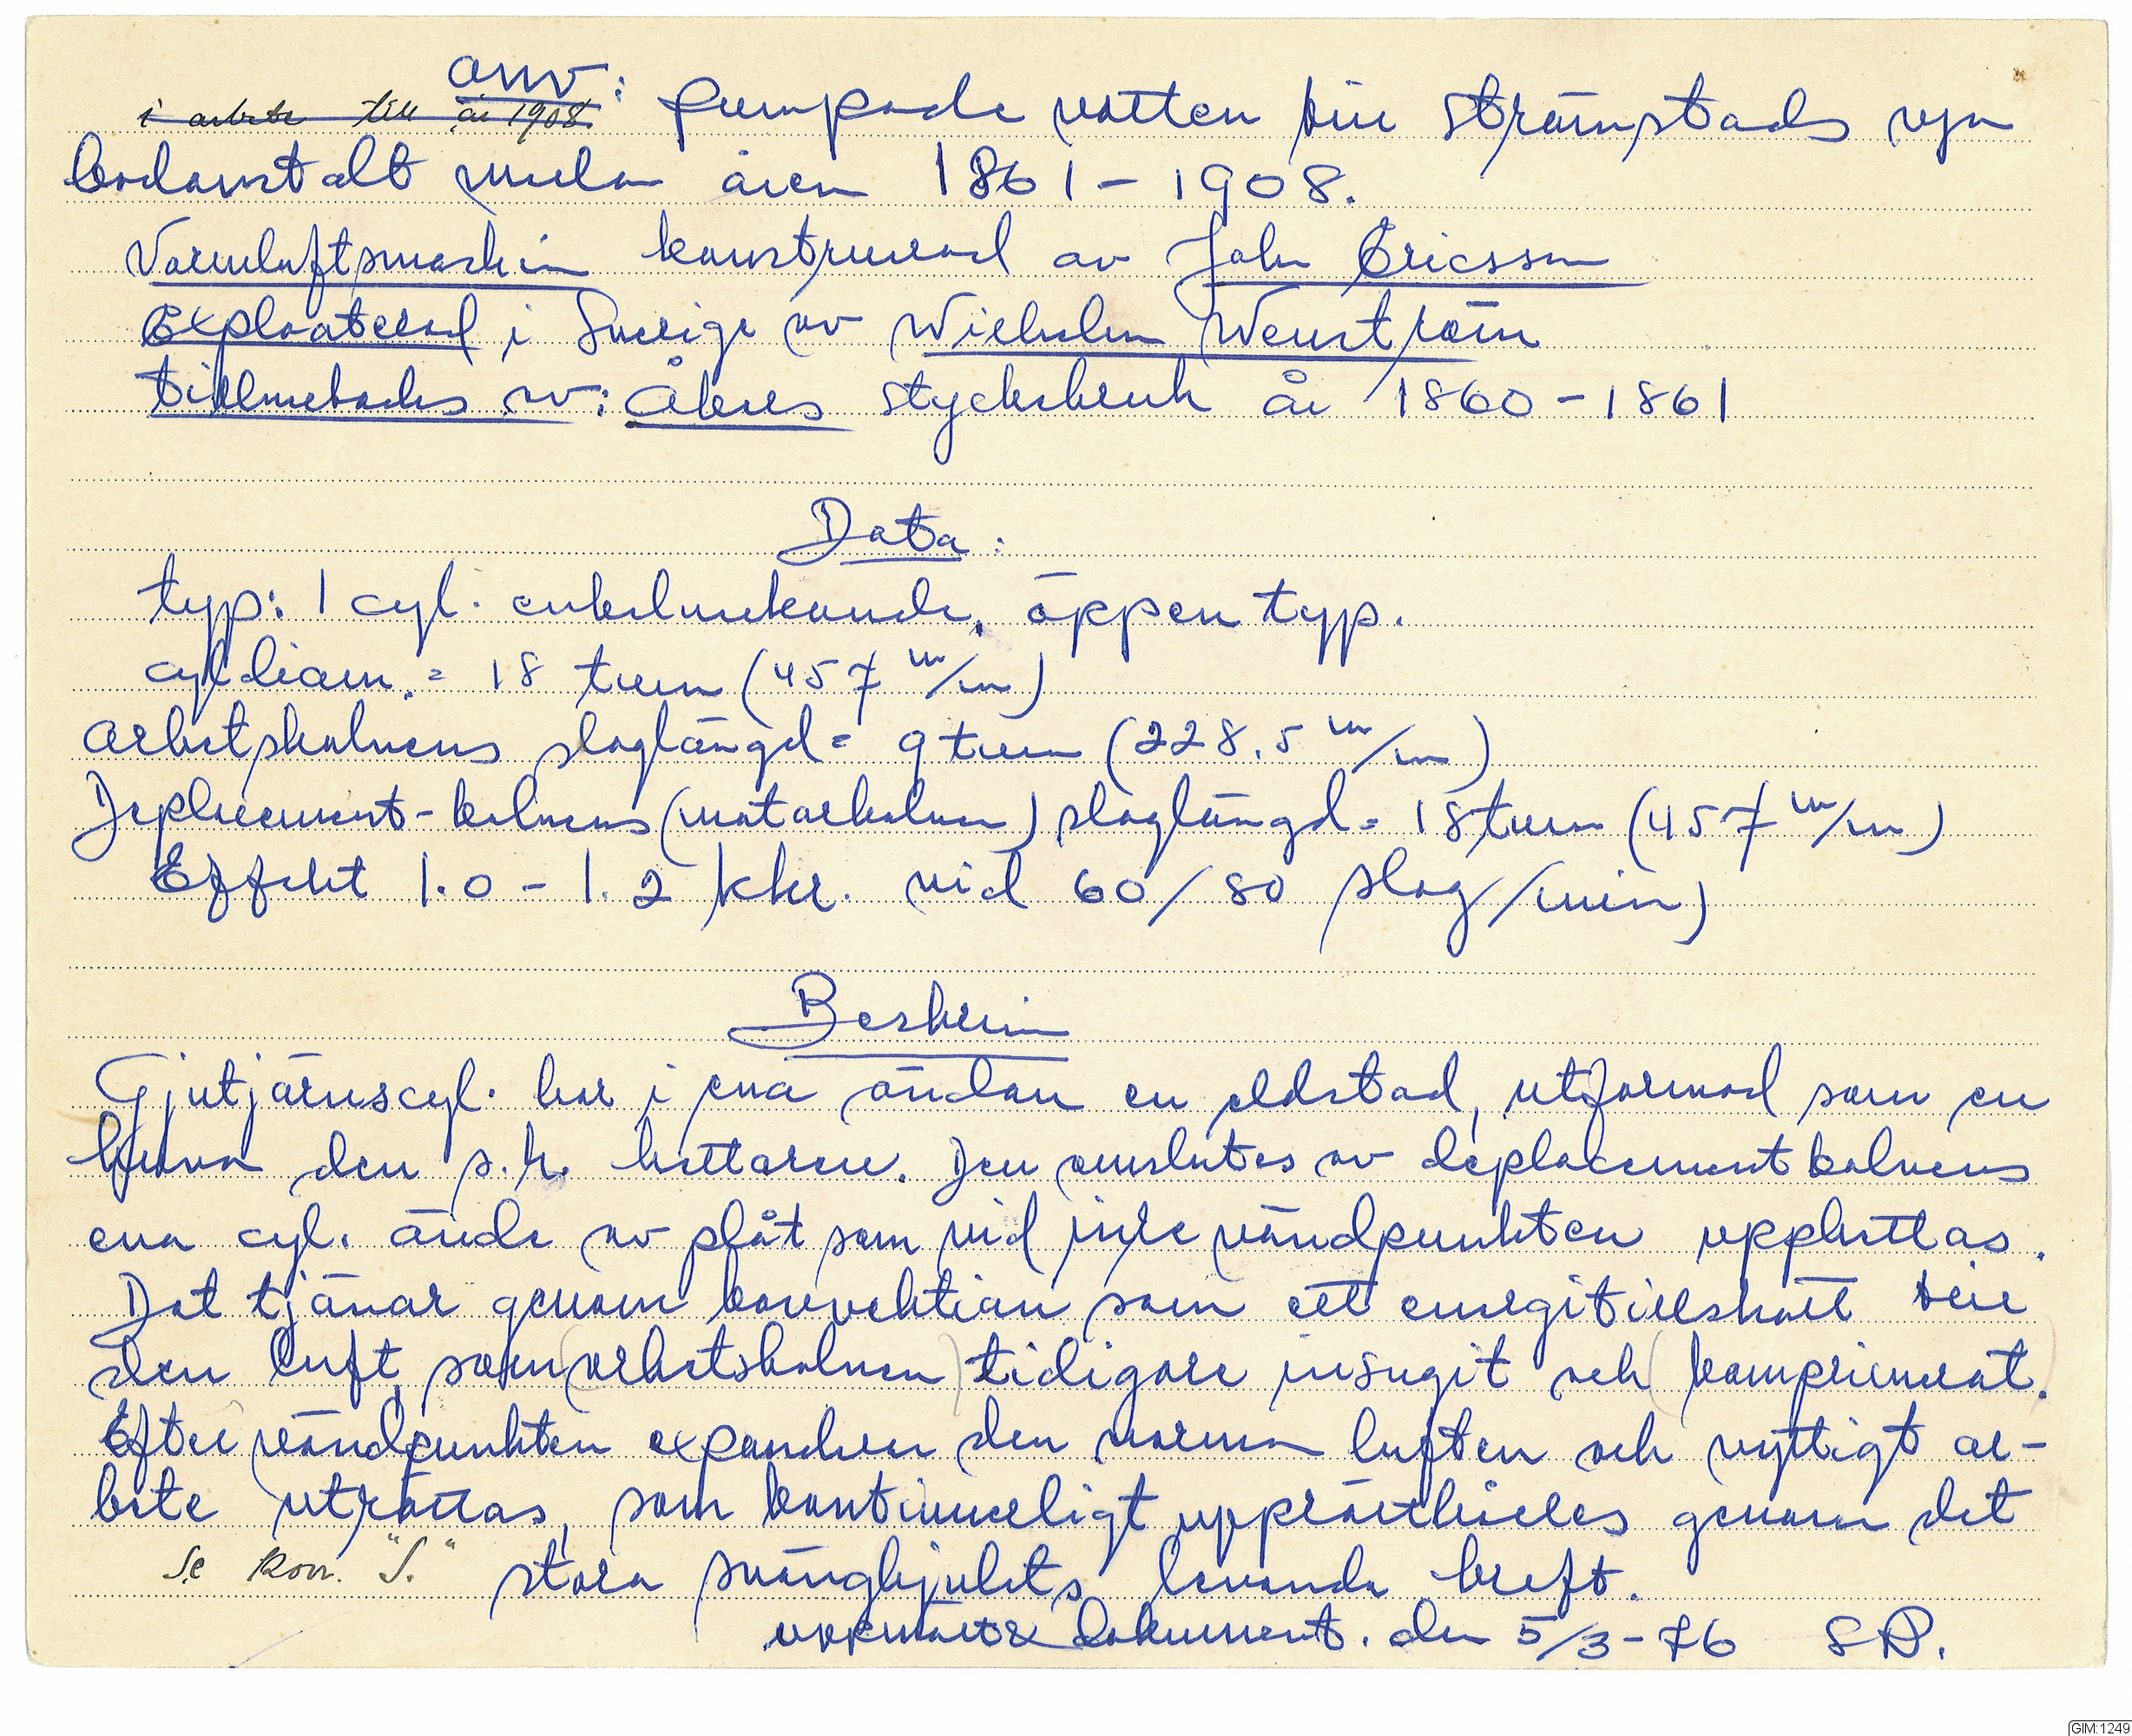 anv:
i arbete till år 1908. pumpade vatten till Strömstads nya
badanstalt mellan åren 1861-1908.
Varmluftsmaskin konstruerad av John Ericsson
Exploaterad i Sverige av Wilhelm Wenström
tillverkades av: Åkers styckebruk år 1860-1861
Data:
typ: 1 cyl. enkelverkande, öppen typ.
cyl diam. = 18 tum (457 m/m)
arbetskolvens slaglängd = 9 tum (228.5 m/m)
Deplacement-kolvens (matarkolven) slaglängd = 18 tum (457 m/m)
Effekt 1.0-1.2 hkr. vid 60/80 slag/min)
Beskrivn
Gjutjärnscyl. har i ena ändan en eldstad, utformad som en
huva den s.k. hettaren. Den omslutes av deplacementkolvens
ena cyl. ände av plåt som vid inre vändpunkten upphettas.
Det tjänar genom konvektion som ett energitillskott till
den luft, som (arbetskolven) tidigare insugit och (komprimerat.)
Efter vändpunkten expanderar den varma luften och nyttigt ar-
bete uträttas, som kontinuerligt upprätthålles genom det
se kon. "S." stora svänghjulets levande kraft.
uppmätt & dokument. den 5/3-76 SP.
GIM:1249